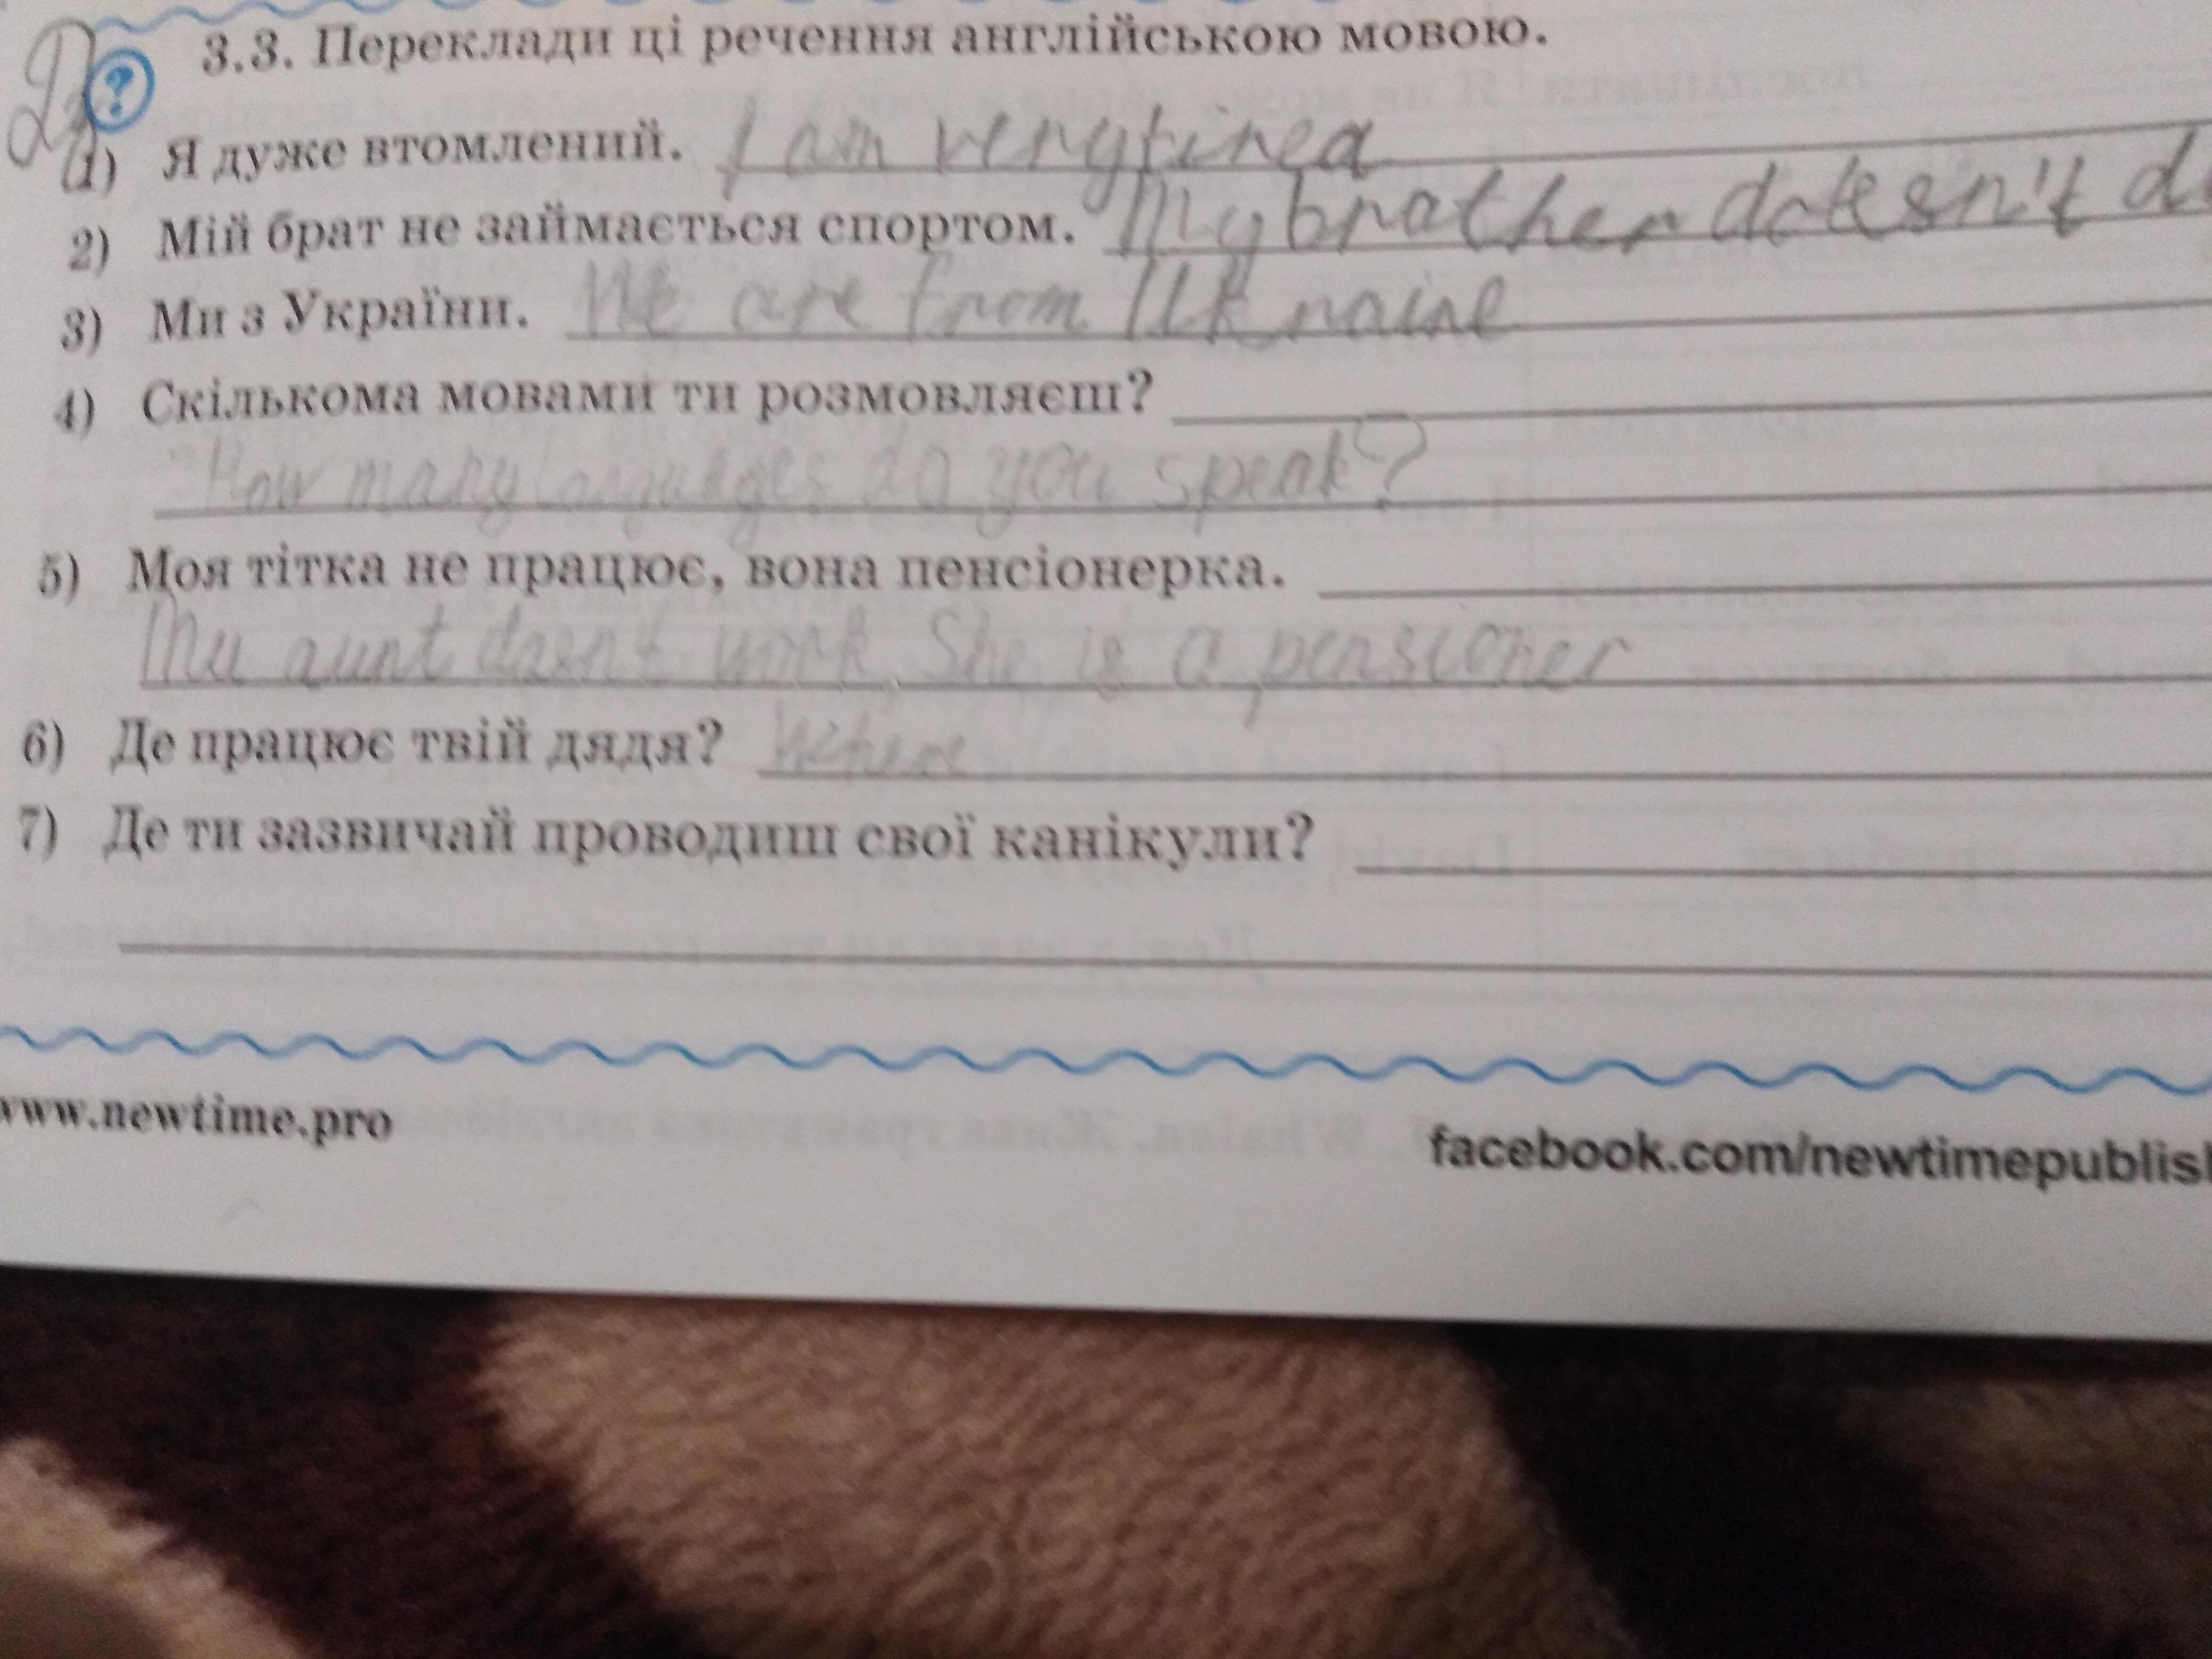 3.3. Переклади ці речення англійською мовою.
?
1) Я дуже втомлений. I am very tired
2) Мій брат не займається спортом. My brother doesn't d
3) Ми з України. We are from Ukraine
4) Скількома мовами ти розмовляєш?
How many languages do you speak?
5) Моя тітка не працює, вона пенсіонерка.
My aunt work, She is a pensioner
6) Де працює твій дядя? Where
7) Де ти зазвичай проводиш свої канікули?
www.newtime.pro
facebook.com/newtimepublish